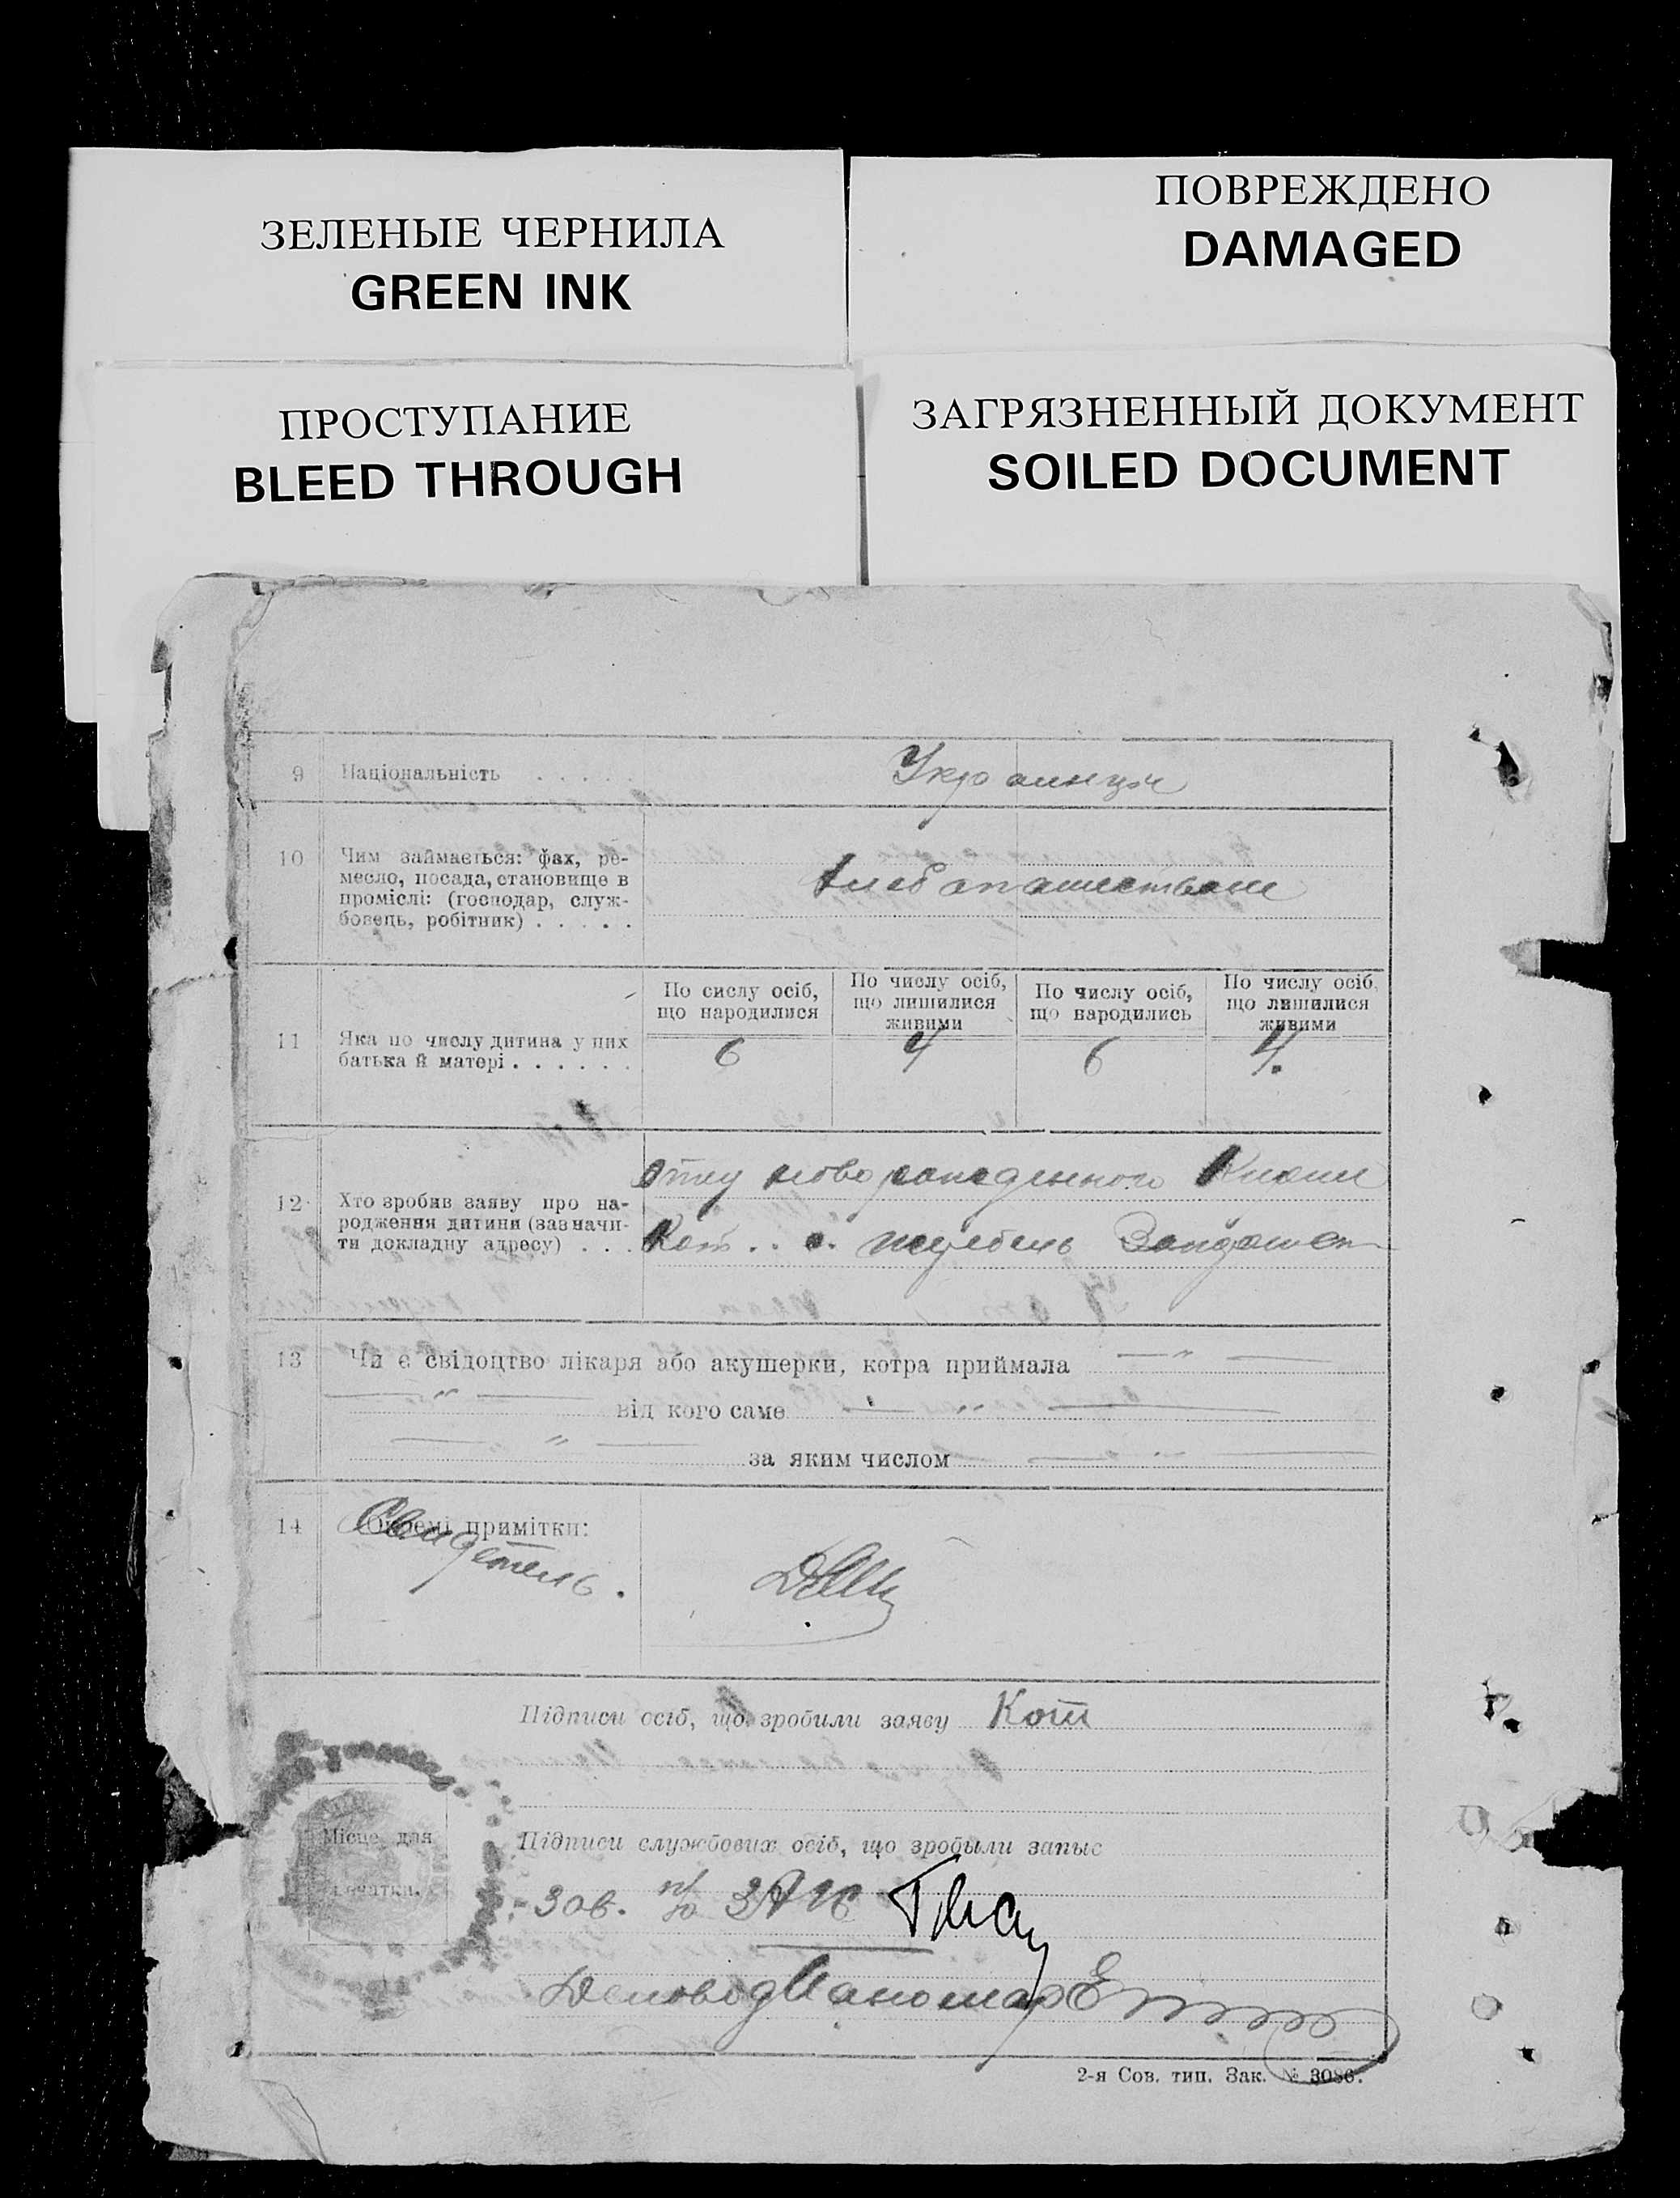 ЗЕЛЕНЫЕ ЧЕРНИЛА
GREEN INK
ПОВРЕЖДЕНО
DAMAGED
ПРОСТУПАНИЕ
BLEED THROUGH
ЗАГРЯЗНЕННЫЙ ДОКУМЕНТ
SOILED DOCUMENT
9 Національність . . . . .
Украинцы
10 Чим займається: фах, ре-
месло, посада, становище в
проміслі: (господар, служ-
бовець, робітник) . . . . .
11 Яка по числу дитина у цих
батька й матері . . . . . .
По сислу осіб,
що народилися
По числу осіб,
що лишилися
живими
По числу осіб,
що народились
По числу осіб,
що лишилися
живими
6 4 6 4.
12 Хто зробив заяву про на-
родження дитини (зазначи-
ти докладну адресу) . . .
Кот
13 Чи є свідоцтво лікаря або акушерки, котра приймала — " —
— " — від кого саме — " —
— " — за яким числом — " —
14 Окремі примітки:
Свидетель.
Підписи осіб, що зробили заяву Кот
Місце для
печатки.
Підписи службових осіб, що зробыли запыс
Зав. п/о ЗАГС
Деловод Паномар
2-я Сов. тип. Зак. № 3086.